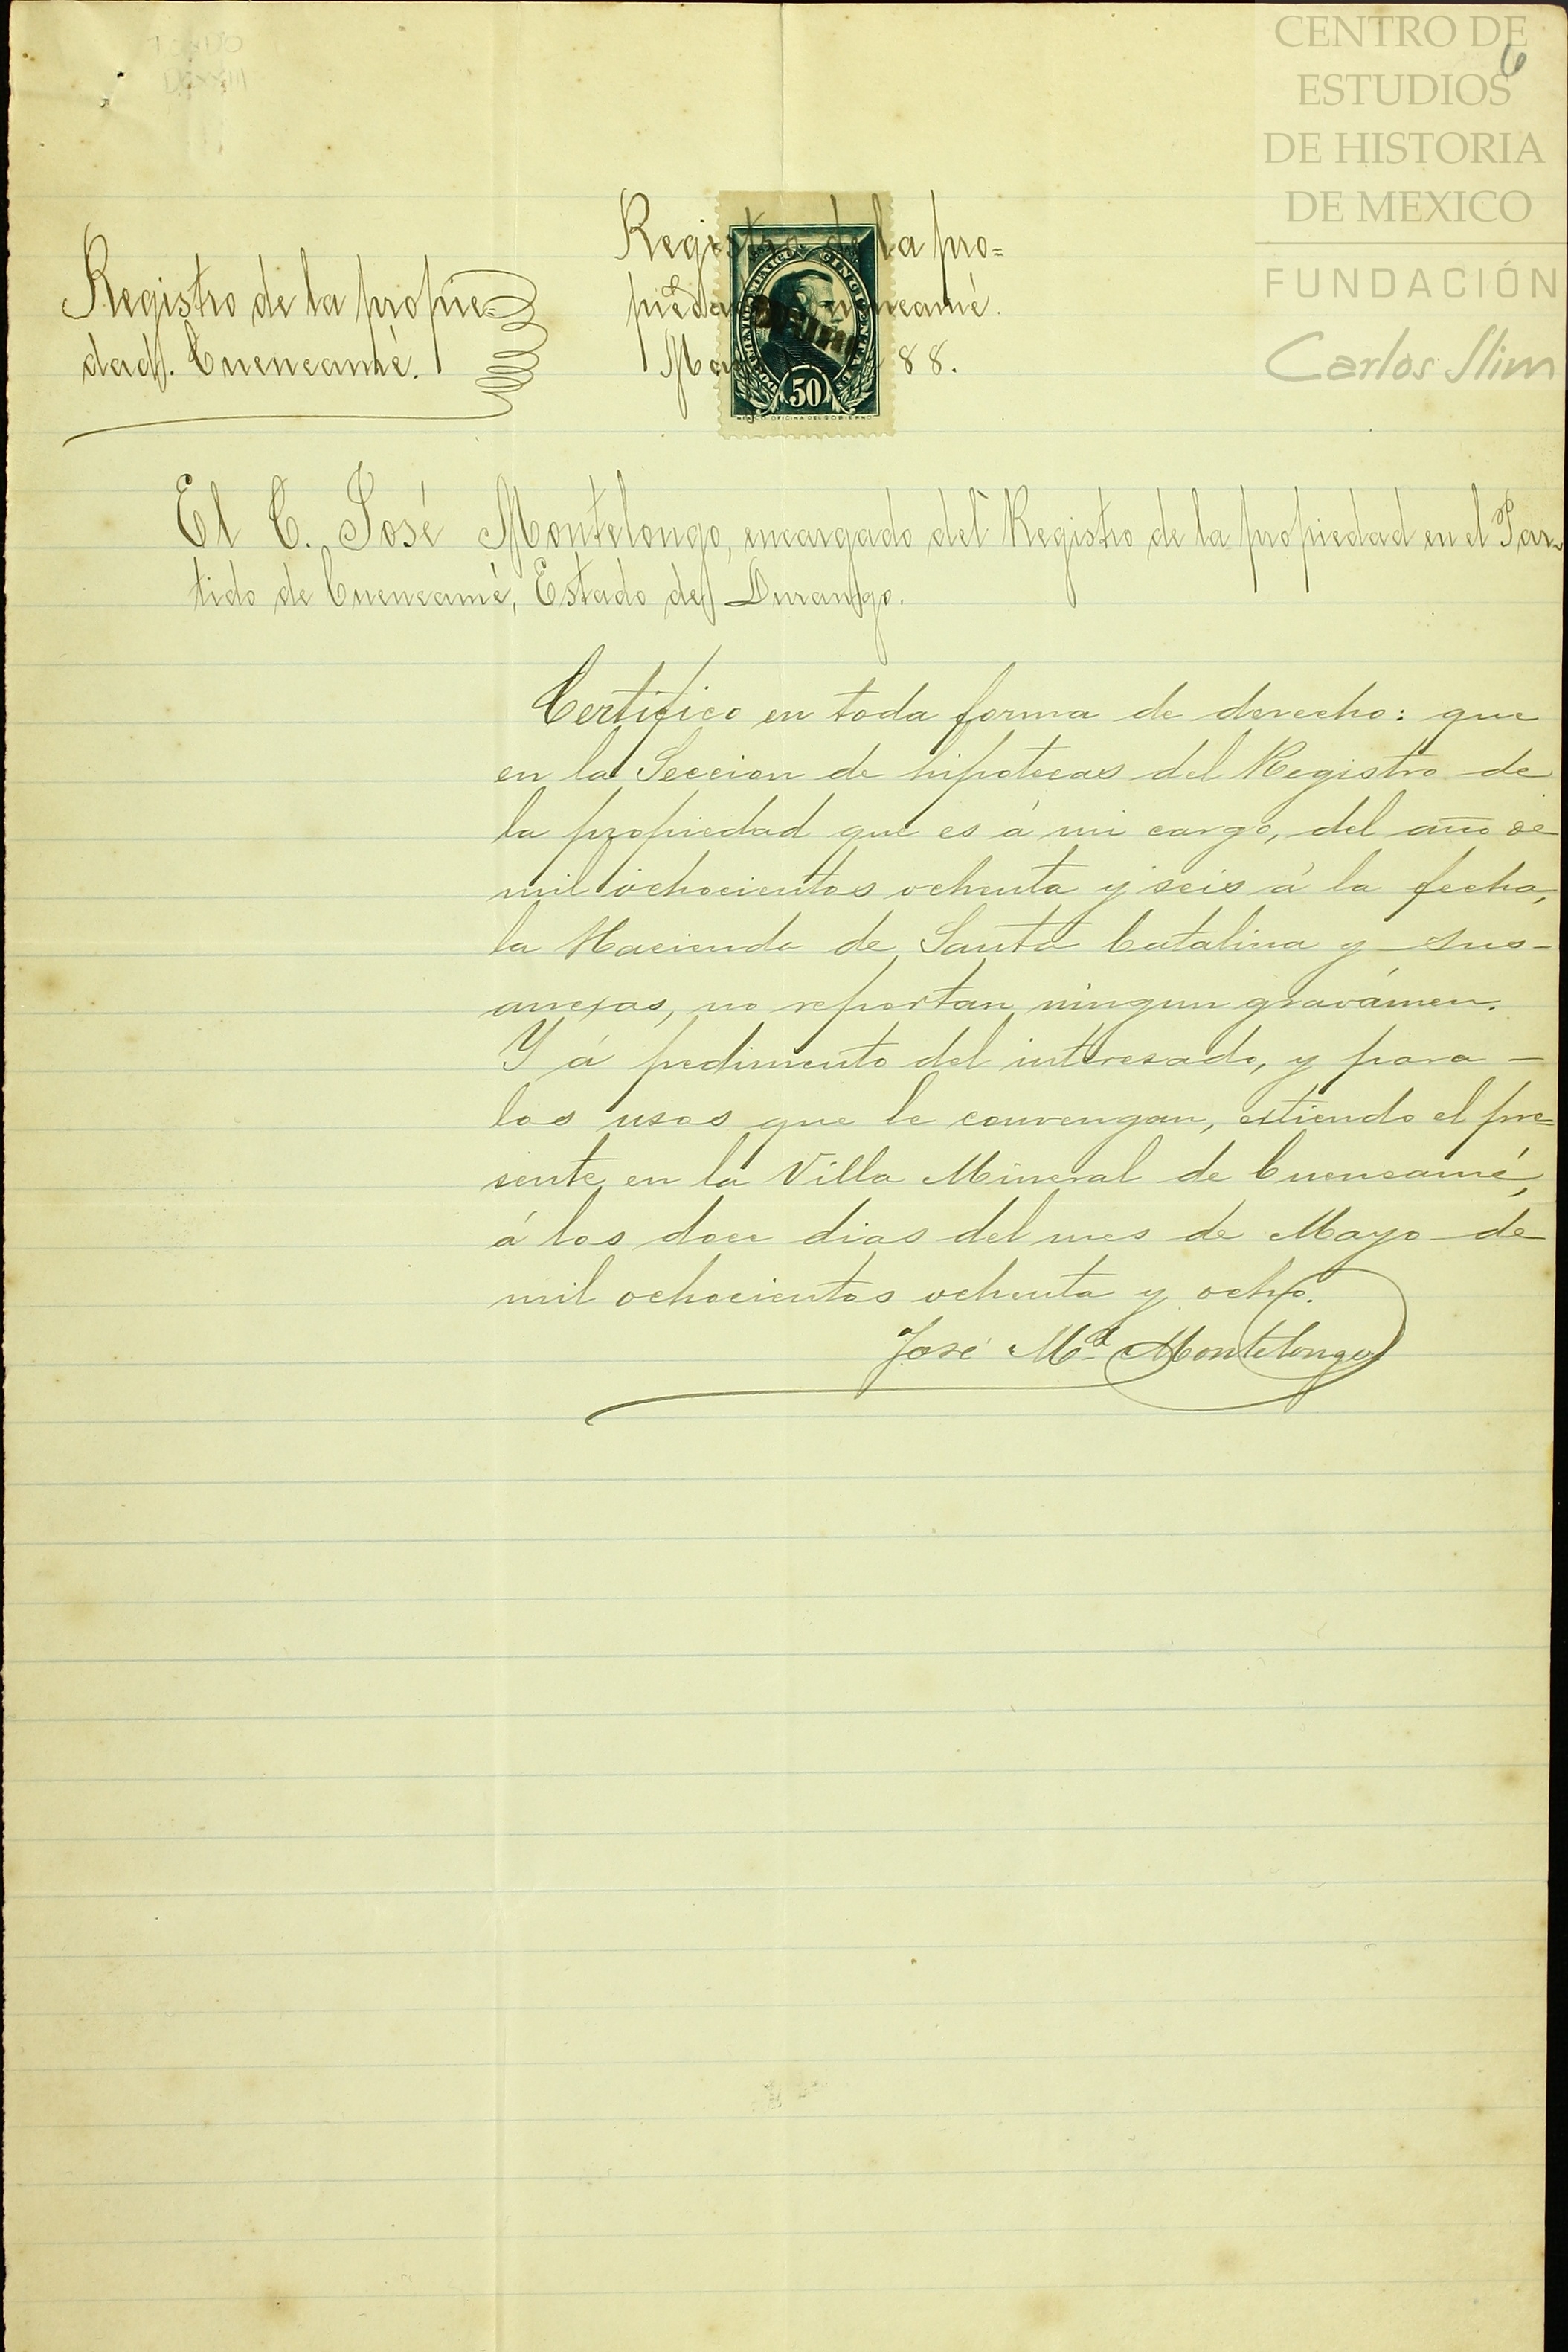 CENTRO DE
ESTUDIOS
DE HISTORIA
DE MEXICO
FUNDACIÓN
Carlos Slim
6
Registro de la propie-
dad. Cuencamé.
Registro de la pro=
piedad Cuencamé.
88.
50
El C. José Montelongo, encargado del Registro de la propiedad en el Par-
tido de Cuencamé, Estado de Durango.
Certifico en toda forma de derecho: que
en la Seccion de hipotecas del Registro de
la propiedad que es á mi cargo, del año de
mil ochocientos ochenta y seis á la fecha,
la Hacienda de Santa Catalina y sus-
anexas, no reportan ningun gravámen.
Y á pedimento del interesado, y para -
los usos que le convengan, extiendo el pre=
sente en la Villa Mineral de Cuencamé,
á los doce dias del mes de Mayo de
mil ochocientos ochenta y ocho.
José Ma. Montelongo